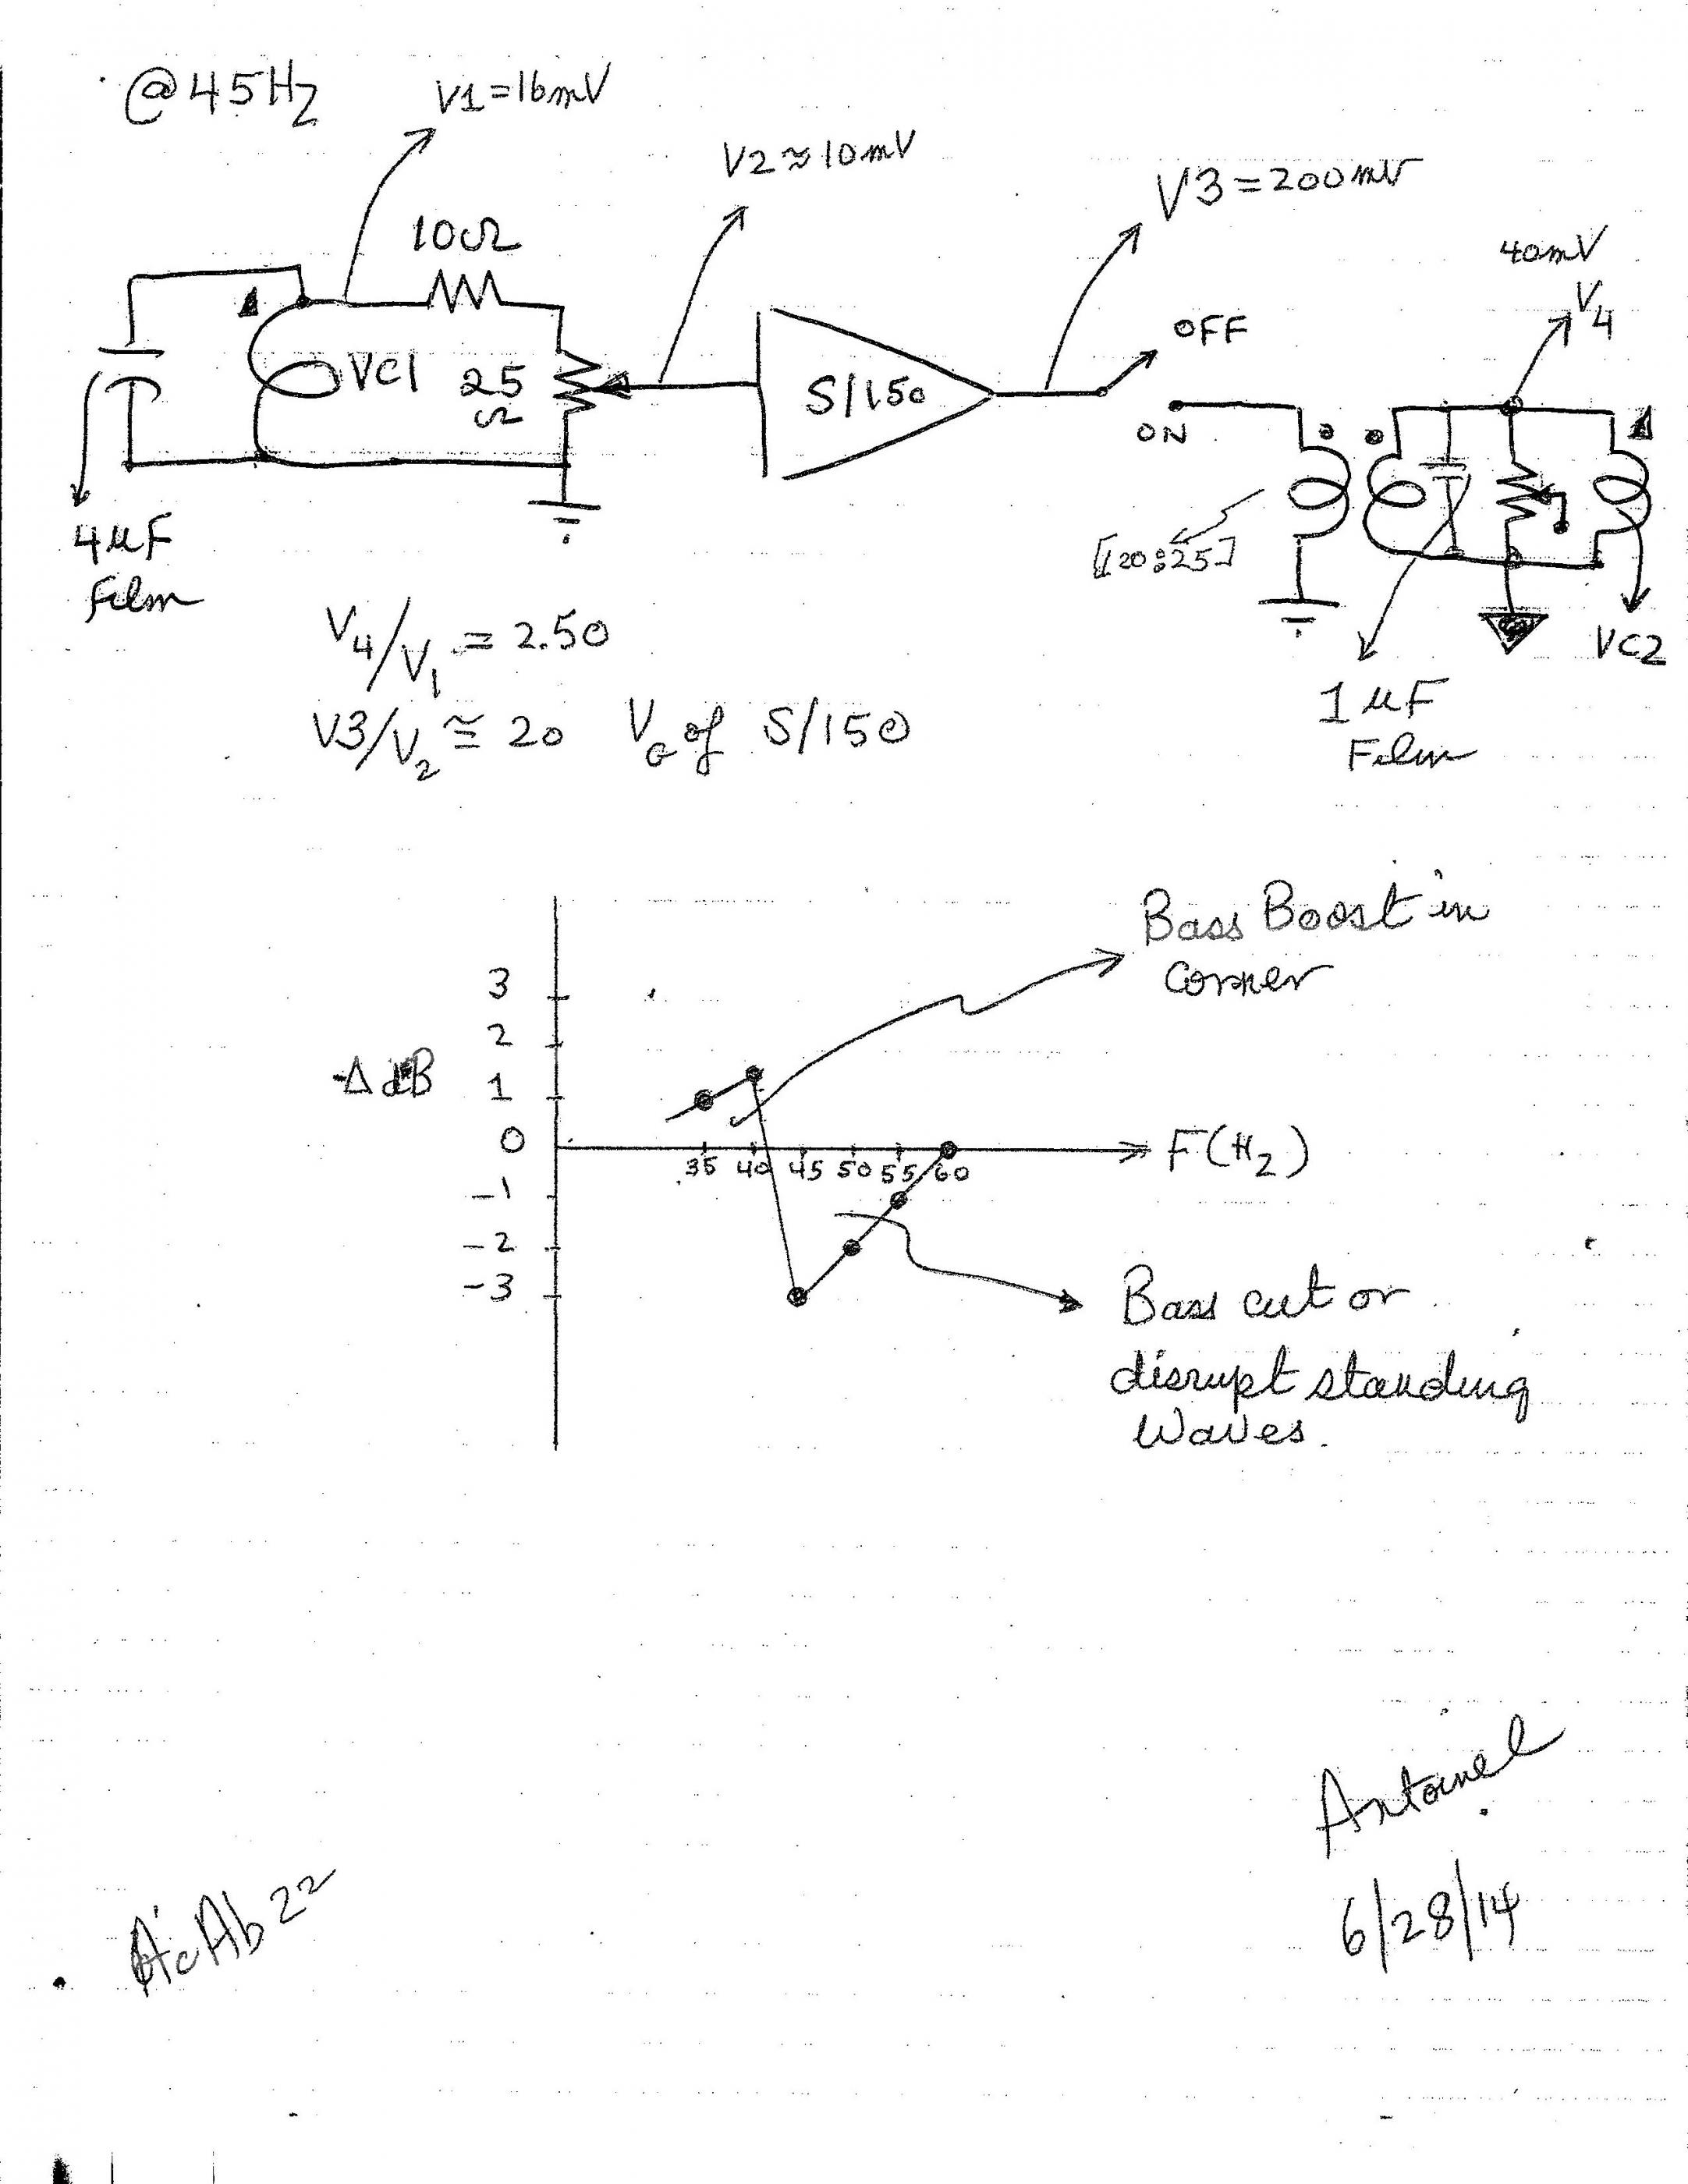 @45Hz
V1=16mV
V2≈10mV
V3=200mV
40mV
V4
10Ω
VC1
25
Ω
S/150
OFF
ON
4µF
Film
[120:25]
VC2
1µF
Film
V4/V1 = 2.50
V3/V2 ≅ 20 VG of S/150
Bass Boost in
Corner
3
2
ΔdB
1
0
35 40 45 50 55 60
F(Hz)
-1
-2
-3
Bass cut or
disrupt standing
Waves.
Antoinel
6/28/14